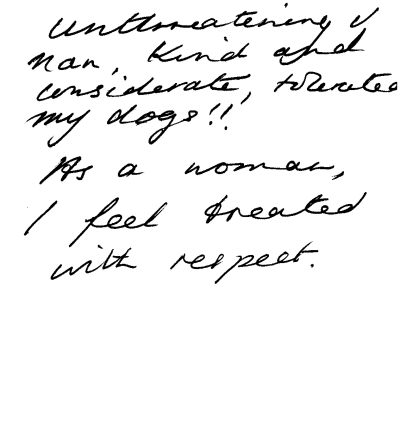 unthreatening
man, kind and
considerate, tolerated
my dogs!!
As a woman,
I feel treated
with respect.